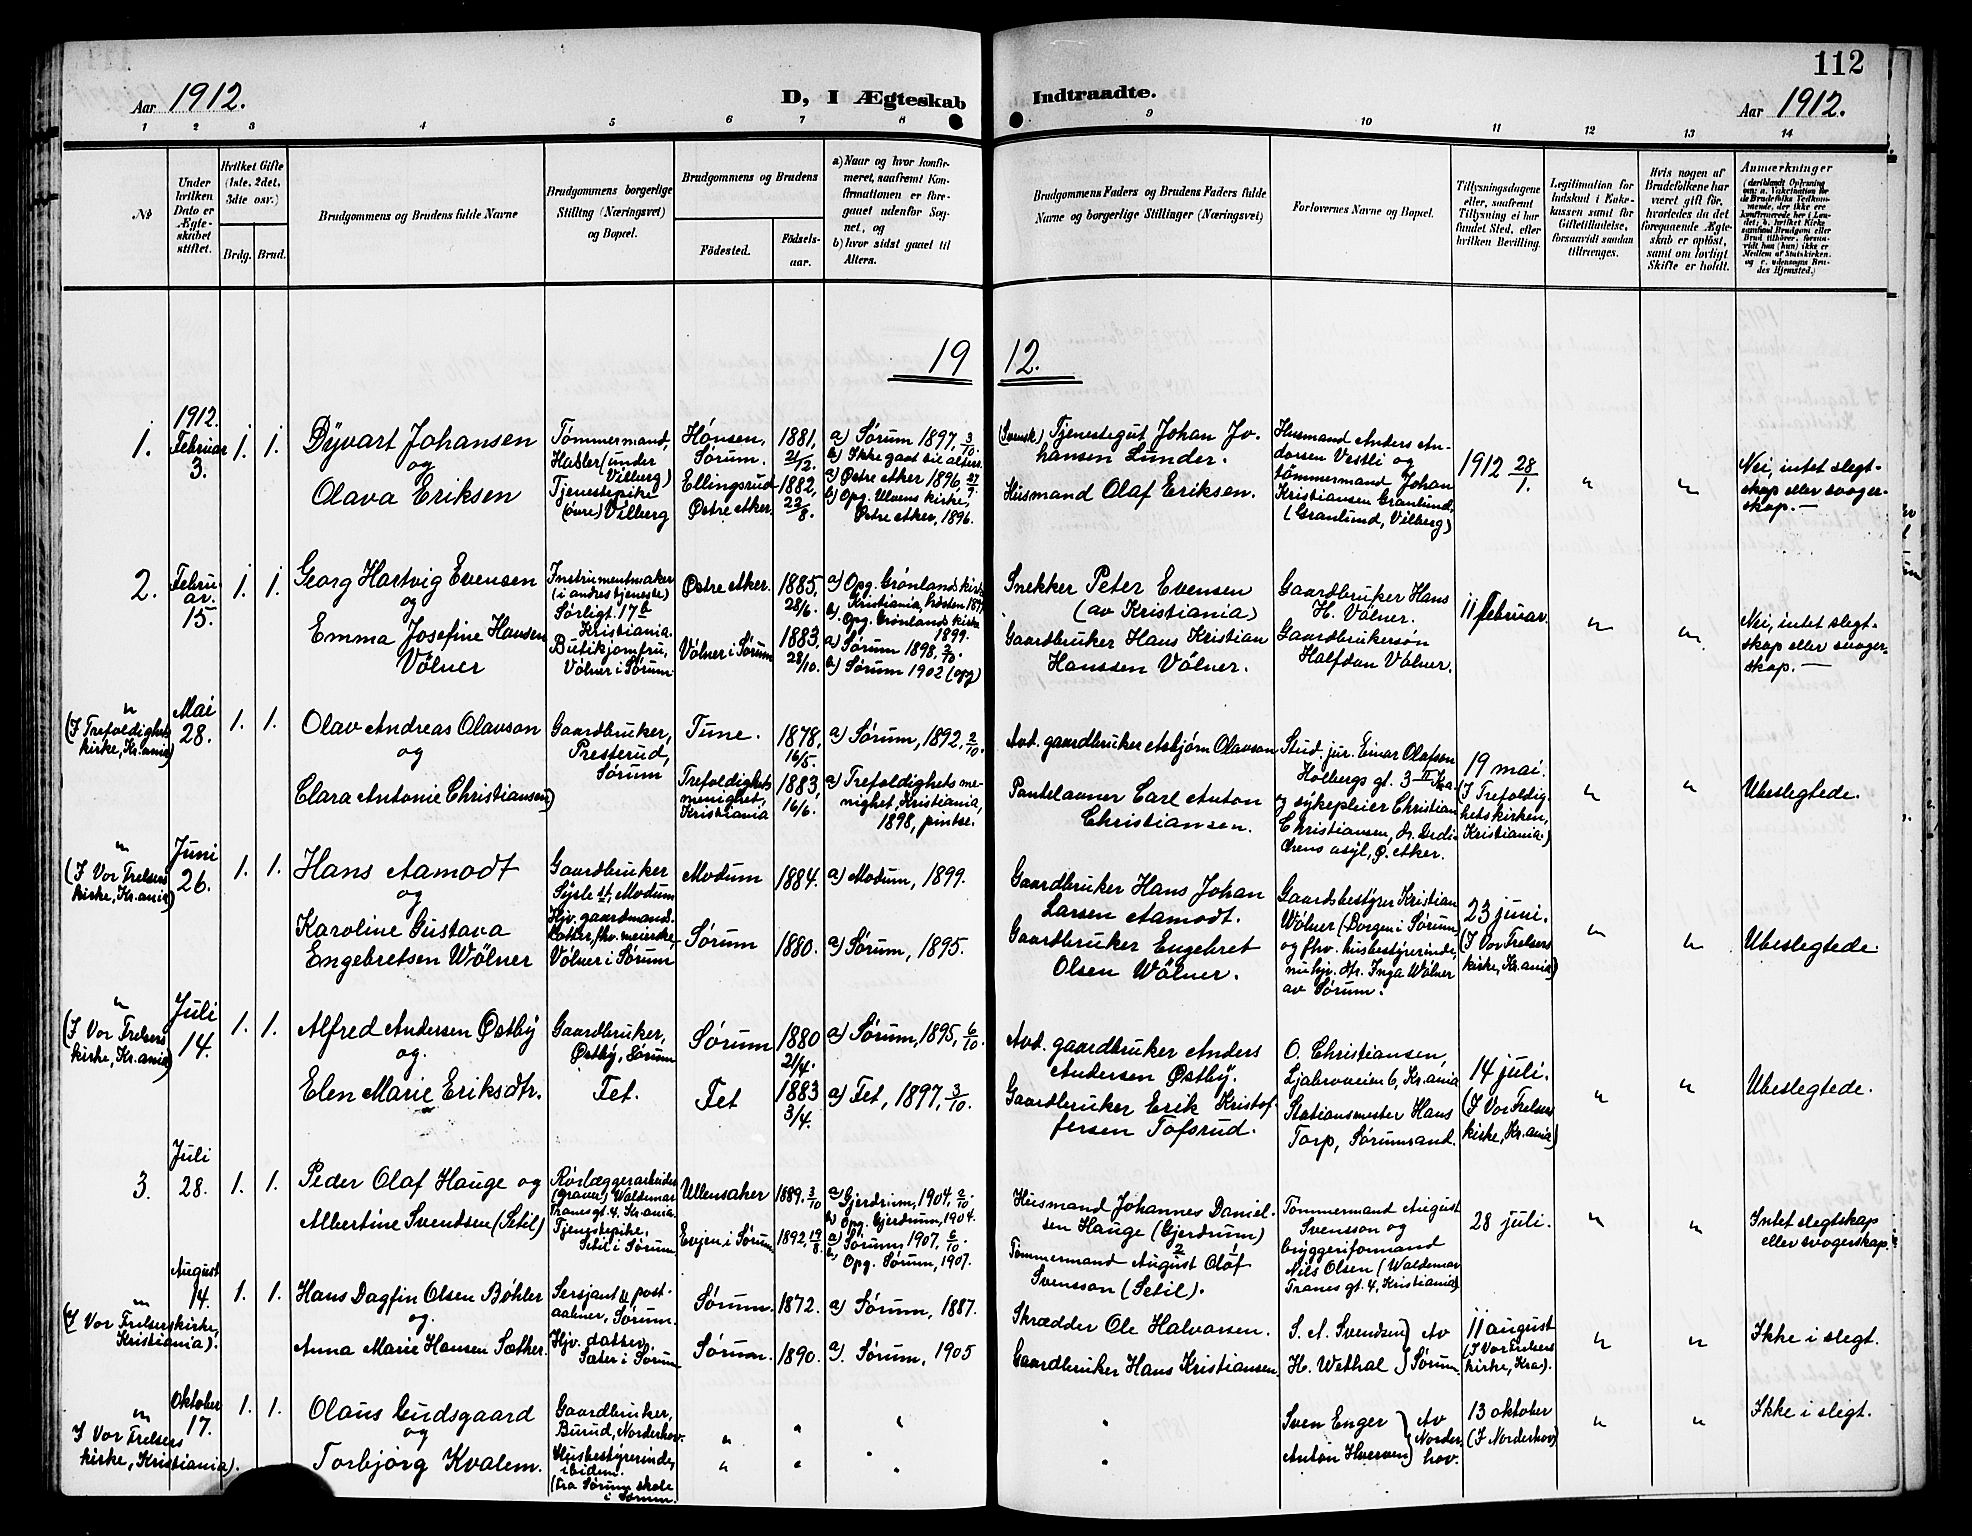 112
Aar 1912.
D, I Ægteskab Indtraadte.
Aar 1912.
1 2 3 4 5 6 7 8 9 10 11 12 13 14
No
Under
hvilken
Dato er
Ægte-
skabet
stiftet.
Hvilket Gifte
(1ste, 2det,
3dte osv.)
Brdg. Brud.
Brudgommens og Brudens fulde Navne
Brudgommens borgerlige
Stilling (Næringsvei)
og Bopæl.
Brudgommens og Brudens
Födested.
Födsels-
aar.
a) Naar og hvor konfir-
meret, saafremt Kon-
firmationen er fore-
gaaet udenfor Sog-
net, og
b) hvor sidst gaaet til
Alters.
Brudgommens Faders og Brudens Faders fulde
Navne og borgerlige Stillinger (Næringsvei)
Forlovernes Navne og Bopæl.
Tillysningsdagene
eller, saafremt
Tillysning ei har
fundet Sted, efter
hvilken Bevilling.
Legitimation for
Indskud i Enke-
kassen samt for
Giftetilladelse,
forsaavidt saadan
tiltrænges.
Hvis nogen af
Brudefolkene har
været gift før,
hvorledes da det
foregaaende Ægte-
skab er opløst,
samt om lovligt
Skifte er holdt.
Anmærkninger
(deriblandt Oplysning
om: a. Vakcination for
de Brudefolks Vedkom-
mende, der ikke ere
konfirmerede her i Lan-
det; b. hvilket Kirke-
samfund Brudgom eller
Brud tilhörer, forsaa-
vidt han (hun) ikke er
Medlem af Statskirken,
og c. udensogns Bru-
des Hjemsted.)
19 12.
1912.
1. Februar
3.
1. 1.
Dyvart Johansen
og
Olava Eriksen
Tømmermand,
Habler (under
Vilberg)
Tjenestepike
(øvre) Vilberg
Hønsen,
Sørum.
Ellingsrud
Østre Aker.
1881,
21/12.
1882,
22/8.
a) Sørum 1897, 3/10.
b) Ikke gaat til alters.
a) Østre Aker 1896, 27/9.
b) Opg. Ulvens kirke,
Østre Aker, 1896.
(Svensk) Tjenestegut Johan Jo-
hansen Lunder.
Husmand Olaf Eriksen.
Husmand Anders An-
dersen Vestli og
tømmermand Johan
Kristiansen Granlund,
(Granlund, Vilberg)
1912 28/1.
"
"
Nei, intet slegt-
skap eller svoger-
skap. —
2. Febru-
ar
15.
1. 1.
Georg Hartvig Evensen
og
Emma Josefine Hansen
Vølner
Instrumentmaker
(i andres tjeneste)
Sørligt. 17 b
Kristiania.
Butikjomfru,
Vølner i Sørum
Østre Aker.
Vølner i Sørum
1885,
28/6.
1883,
28/10.
a) Opg. Grønlands kirke
Kristiania, høsten 1899
b) Opg. Grønlands kirke
1899.
a) Sørum 1898, 2/10.
b) Sørum 1902 (opg)
Snekker Peter Evensen
(av Kristiania)
Gaardbruker Hans Kristian
Hanssen Vølner.
Gaardbruker Hans
H. Vølner.
Gaardbrukersøn
Halfdan Vølner.
11 februar.
"
"
Nei, intet slegt-
skap eller svoger-
skap. —
"
(I Trefoldighets
kirke, Kr.ania)
Mai
28.
1. 1.
Olav Andreas Olavson
og
Clara Antonie Christiansen
Gaardbruker,
Presterud,
Sørum
Tune.
Trefoldighets
menighet,
Kristiania
1878,
16/5.
1883,
16/6.
a) Sørum, 1892, 2/10.
a) Trefoldighets me-
nighet, Kristiania,
1898, pintse.
Avd. gaardbruker Asbjørn Olavson
Pantelaaner Carl Anton
Christiansen.
Stud. jur. Einar Olafson
Holbergs gt. 3 II Kra.
og sykepleier Christian
Christiansen, dr. Dedi-
chens asyl, Ø. Aker.
19 mai.
(I Trefoldig-
hetskirken,
Kristiania.)
"
"
Ubeslegtede.
"
(I Vor Frelsers
kirke, Kr.ania)
Juni
26.
1. 1.
Hans Aamodt
og
Karoline Gustava
Engebretsen Wølner
Gaardbruker
Sysle st, Modum
Hjv. gaardmands-
datter, fhv. meierske,
Vølner i Sørum
Modum
Sørum
1884.
1880.
a) Modum, 1899.
a) Sørum, 1895.
Gaardbruker Hans Johan
Larsen Aamodt.
Gaardbruker Engebret
Olsen Wølner.
Gaardsbestyrer Kristian
Wølner (Dorgen i Sørum)
og fhv. husbestyrerinde,
nu hjv. dtr. Inga Wølner
av Sørum.
23 juni.
(I Vor Frelsers
kirke, Kr.ania)
"
"
Ubeslegtede.
"
(I Vor Frelsers
kirke, Kr.ania)
Juli
14.
1. 1.
Alfred Andersen Østby
og.
Elen Marie Eriksdtr.
Gaardbruker,
Østby, Sørum
Fet.
Sørum
Fet
1880
21/4.
1883
3/4.
a) Sørum, 1895, 6/10.
a) Fet, 1897, 3/10.
Avd. gaardbruker Anders
Andersen Østby.
Gaardbruker Erik Kristof-
fersen Tofsrud.
O. Christiansen,
Ljabroveien 6, Kr.ania
Stationsmester Hans
Torp, Sørumsand.
14 juli.
(I Vor Frelsers
kirke, Kr.ania)
"
"
Ubeslegtede.
3. Juli
28.
1. 1.
Peder Olaf Hauge og
Albertine Svendsen (Setil)
Rørlæggerarbeider
(graver) Waldemar
Tranes gt. 4. Kr.ania.
Tjenestepike,
Setil i Sørum
Ullensaker
Evjen i Sørum
1889. 3/10
1892, 19/8.
a) Gjerdrum, 1904, 2/10.
b) Opg. Gjerdrum, 1904.
a) Sørum, 1907, 6/10.
b) Opg. Sørum, 1907.
Husmand Johannes Daniel-
sen Hauge (Gjerdrum)
Tømmermand August Olof
Svensson (Setil).
Tømmermand August
Svensson og
bryggeriformand
Nils Olsen (Waldemar
Tranes gt. 4, Kristiania)
28 juli.
"
"
Intet slegtskap
eller svogerskap.
"
(I Vor Frelsers kirke,
Kristiania).
August
14.
1. 1.
Hans Dagfin Olsen Bøhler
og.
Anna Marie Hansen Sæther.
Sersjant & post-
aabner, Sørum.
Hjv. datter,
Sæter i Sørum
Sørum.
Sørum.
1872.
1890.
a) Sørum, 1887.
a). Sørum, 1905
Skrædder Ole Halvorsen.
Gaardbruker Hans Kristiansen.
S. A. Svendsen
H. Wethal
} Av
Sørum
11 august
(I Vor Frelsers
kirke, Kra).
"
"
Ikke i slegt.
"
I Vor Frelsers
kirke, Kristiania).
Oktober
17.
1. 1.
Olaus Gudsgaard
og
Torbjørg Kvalem.
Gaardbruker,
Burud, Norderhov.
Husbestyrerinde,
ibidem.
(fra Sørum skole
i Sørum.
"
"
Sven Enger
Anton Hverven
} Av
Norder-
hov.
13 oktober
(I Norderhov)
"
"
Ikke i slegt.